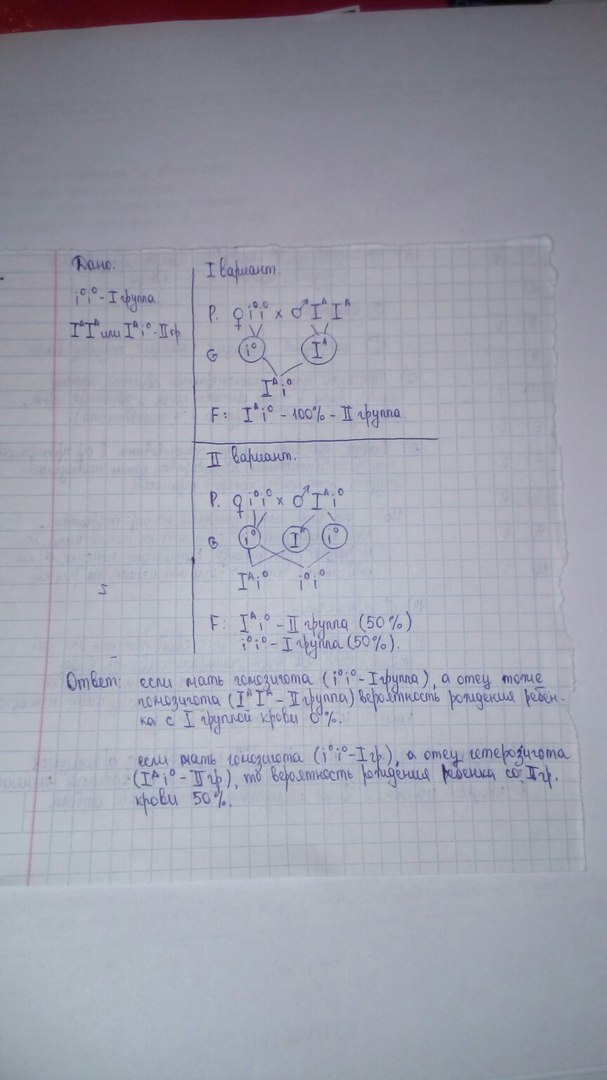 Дано:
i⁰i⁰ - I группа
IᴬIᴬ или Iᴬi⁰ - II гр
I вариант.
P. ♀ i⁰i⁰ × ♂ IᴬIᴬ
G i⁰ Iᴬ
Iᴬi⁰
F: Iᴬi⁰ - 100% - II группа.
II вариант.
P. ♀ i⁰i⁰ × ♂ Iᴬi⁰
G i⁰ Iᴬ i⁰
Iᴬi⁰ i⁰i⁰
F: Iᴬi⁰ - II группа (50%)
i⁰i⁰ - I группа (50%).
Ответ: если мать гомозигота (i⁰i⁰ - I группа), а отец тоже
гомозигота (IᴬIᴬ - II группа) вероятность рождения ребен-
ка с I группой крови 0%.
если мать гомозигота (i⁰i⁰ - I гр.), а отец гетерозигота
(Iᴬi⁰ - II гр), то вероятность рождения ребенка со II гр.
крови 50%.